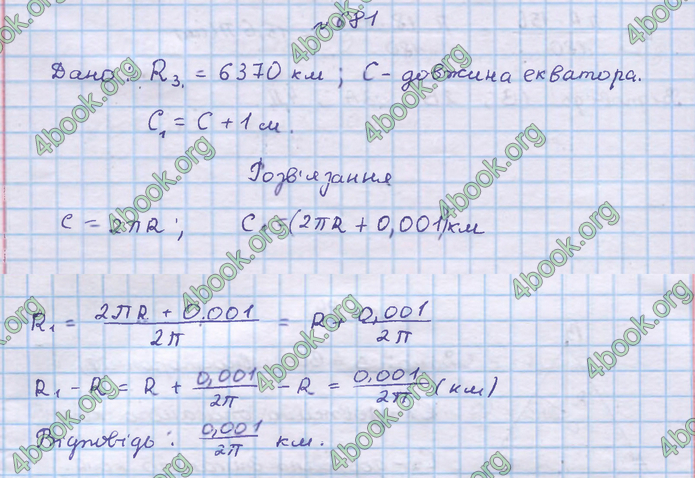 № 681
Дано: R з. = 6370 км; C - довжина екватора.
C₁ = C + 1 м.
Розв'язання
C = 2πR; C₁ = (2πR + 0,001) км
R₁ = (2πR + 0.001)/(2π) = R + 0,001/(2π)
R₁ - R = R + 0,001/(2π) - R = 0,001/(2π) (км)
Відповідь: 0,001/(2π) км.
4book.org